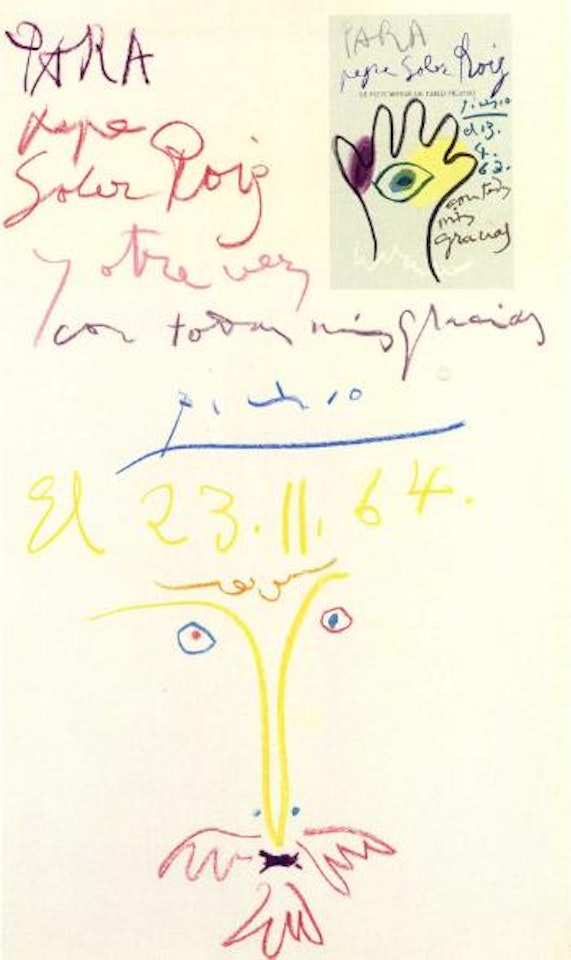 PARA
pepe
Soler Roig
y otra vez
con todas mis gracias
Picasso
El 23.11.64.
PARA
pepe Soler Roig
Picasso
el 13.
4.
62.
con todas
mis
gracias